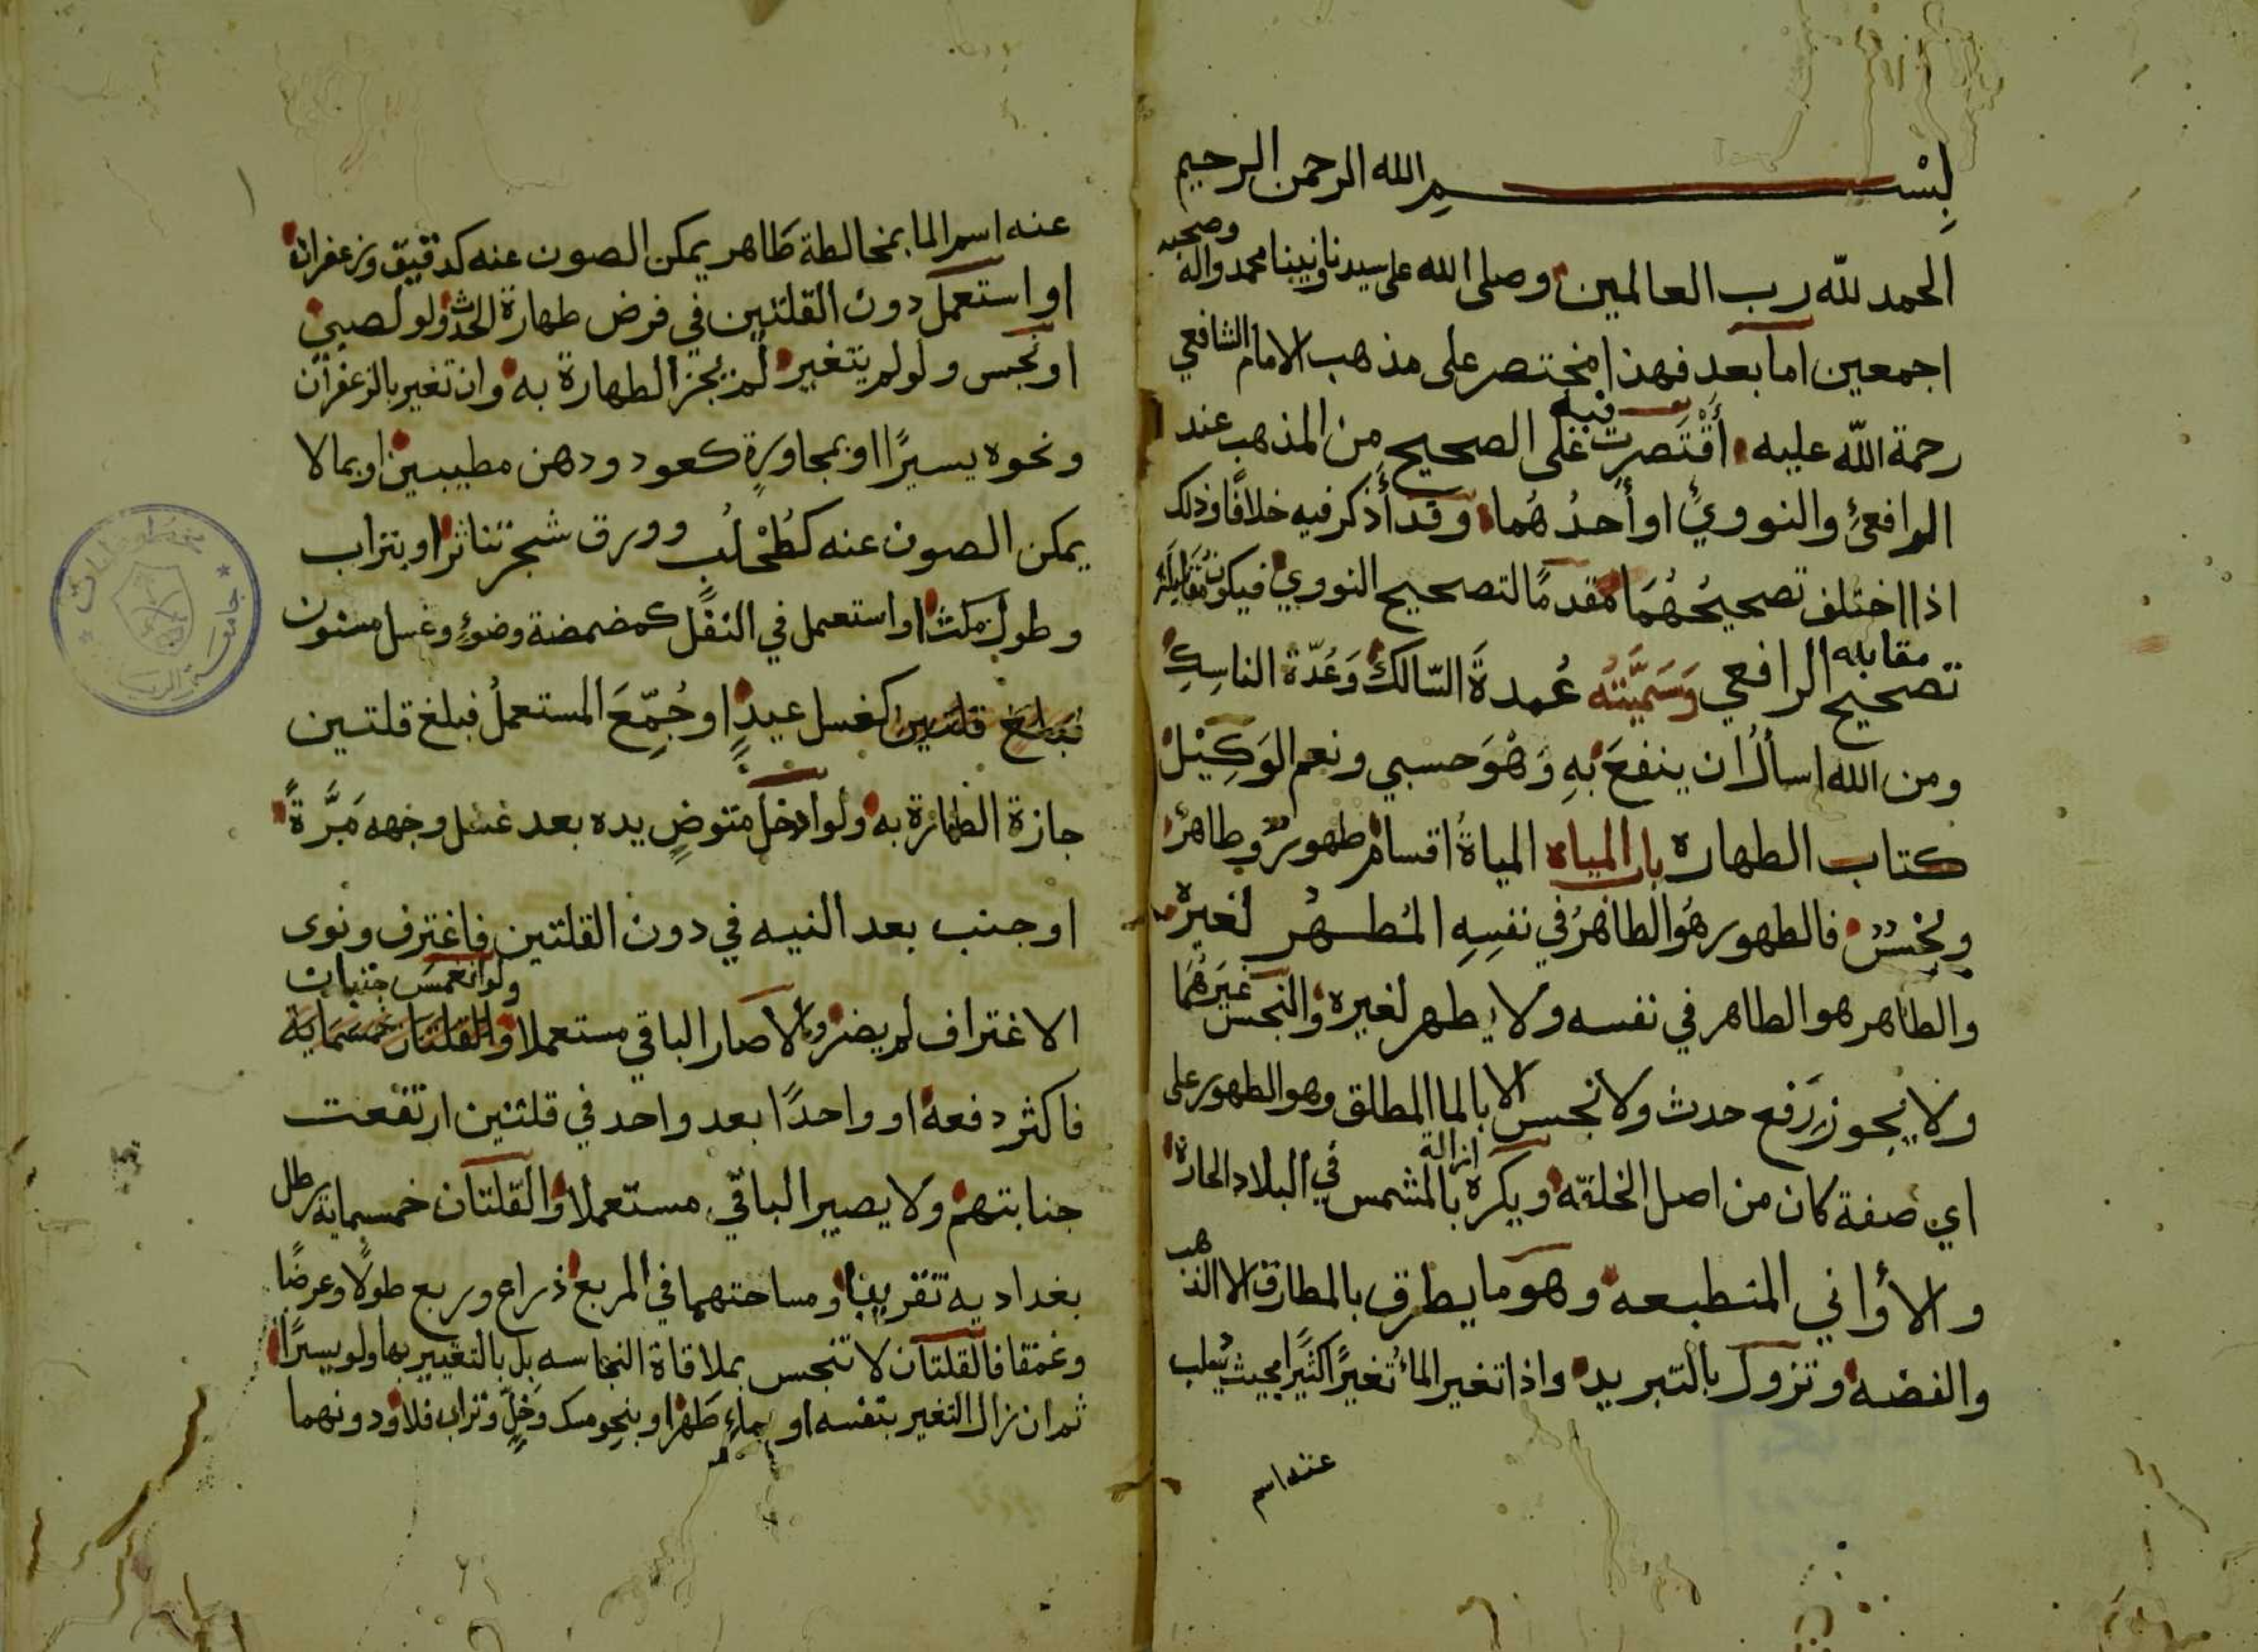 بِسْــــــمِ الله الرحمن الرحيم
الحمد لله رب العالمين وصلى الله على سيدنا ونبينا محمد واله وصحبه
اجمعين اما بعد فهذا مختصر على مذهب الامام الشافعي
رحمة الله عليه أقتصرت فيه على الصحيح من المذهب عند
الرافعي والنووي او أحدهما وقد أذكر فيه خلافا وذلك
اذا اختلف تصحيحهما مقدما لتصحيح النووي فيكون مقابله
مقابله
تصحيح الرافعي وسميته عمدة السالك وعدة الناسك
ومن الله اسأل ان ينفع به وهو حسبي ونعم الوكيل
كتاب الطهاره باب المياه المياة اقسام طهور وطاهر
ونجس فالطهور هو الطاهر في نفسه المطهر لغيره
والطاهر هو الطاهر في نفسه ولا يطهر لغيره والنجس غيرهما
ولا يجوز رفع حدث ولا نجس الا بالما المطلق وهو الطهور على
ازالة
اي صفة كان من اصل الخلقه ويكره بالمشمس في البلاد الحارة
والأواني المنطبعه وهو ما يطرق بالمطارق الا الذهب
والفضه وتزول بالتبريد واذا تغير الماء تغيرا كثيرا بحيث يسلب
عنه اسم
عنه اسم الما بمخالطة طاهر يمكن الصون عنه كدقيق وزعفران
او استعمل دون القلتين في فرض طهارة الحدث ولو لصبي
او نجس ولو لم يتغير لم يجز الطهارة به وان تغير بالزعفران
ونحوه يسيرًا او بمجاورة كعود ودهن مطيبين او بما لا
يمكن الصون عنه كطحلب وورق شجر تناثر او بتراب
وطول مكث او استعمل في النفل كمضمضة وضوء وغسل مسنون
فبلغ قلتين كغسل عيد او جمع المستعمل فبلغ قلتين
جازة الطهارة به ولو ادخل متوض يده بعد غسل وجهه مرة
او جنب بعد النيه في دون القلتين فاغترف ونوى
ولو انغمس جنبان
الاغتراف لم يضر والا صار الباقي مستعملا والقلتان خمسماية
فاكثر دفعة او واحدًا بعد واحد في قلتين ارتفعت
جنابتهم ولا يصير الباقي مستعملا والقلتان خمسماية رطل
بغداديه تقريبا ومساحتهما في المربع ذراع وربع طولا وعرضا
وعمقا فالقلتان لا تنجس بملاقاة النجاسه بل بالتغيير بها ولو يسيرا
ثم ان زال التغير بنفسه او بماء طهرا او بنحو مسك وخل وتراب فلا ودونهما